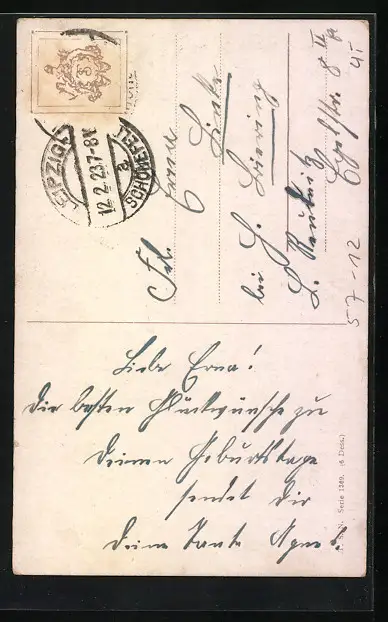 LEIPZIG-
12.2.23.7-8V.
SCHÖNEFELD
a
Frl. Erna
Linke
bei G.
L. Reudnitz
57-12
Liebe Erna!
Die besten Glückwünsche zu
Deinem Geburtstage
sendet Dir
Deine Tante Agnes!
Serie 1369. (6 Dess.)